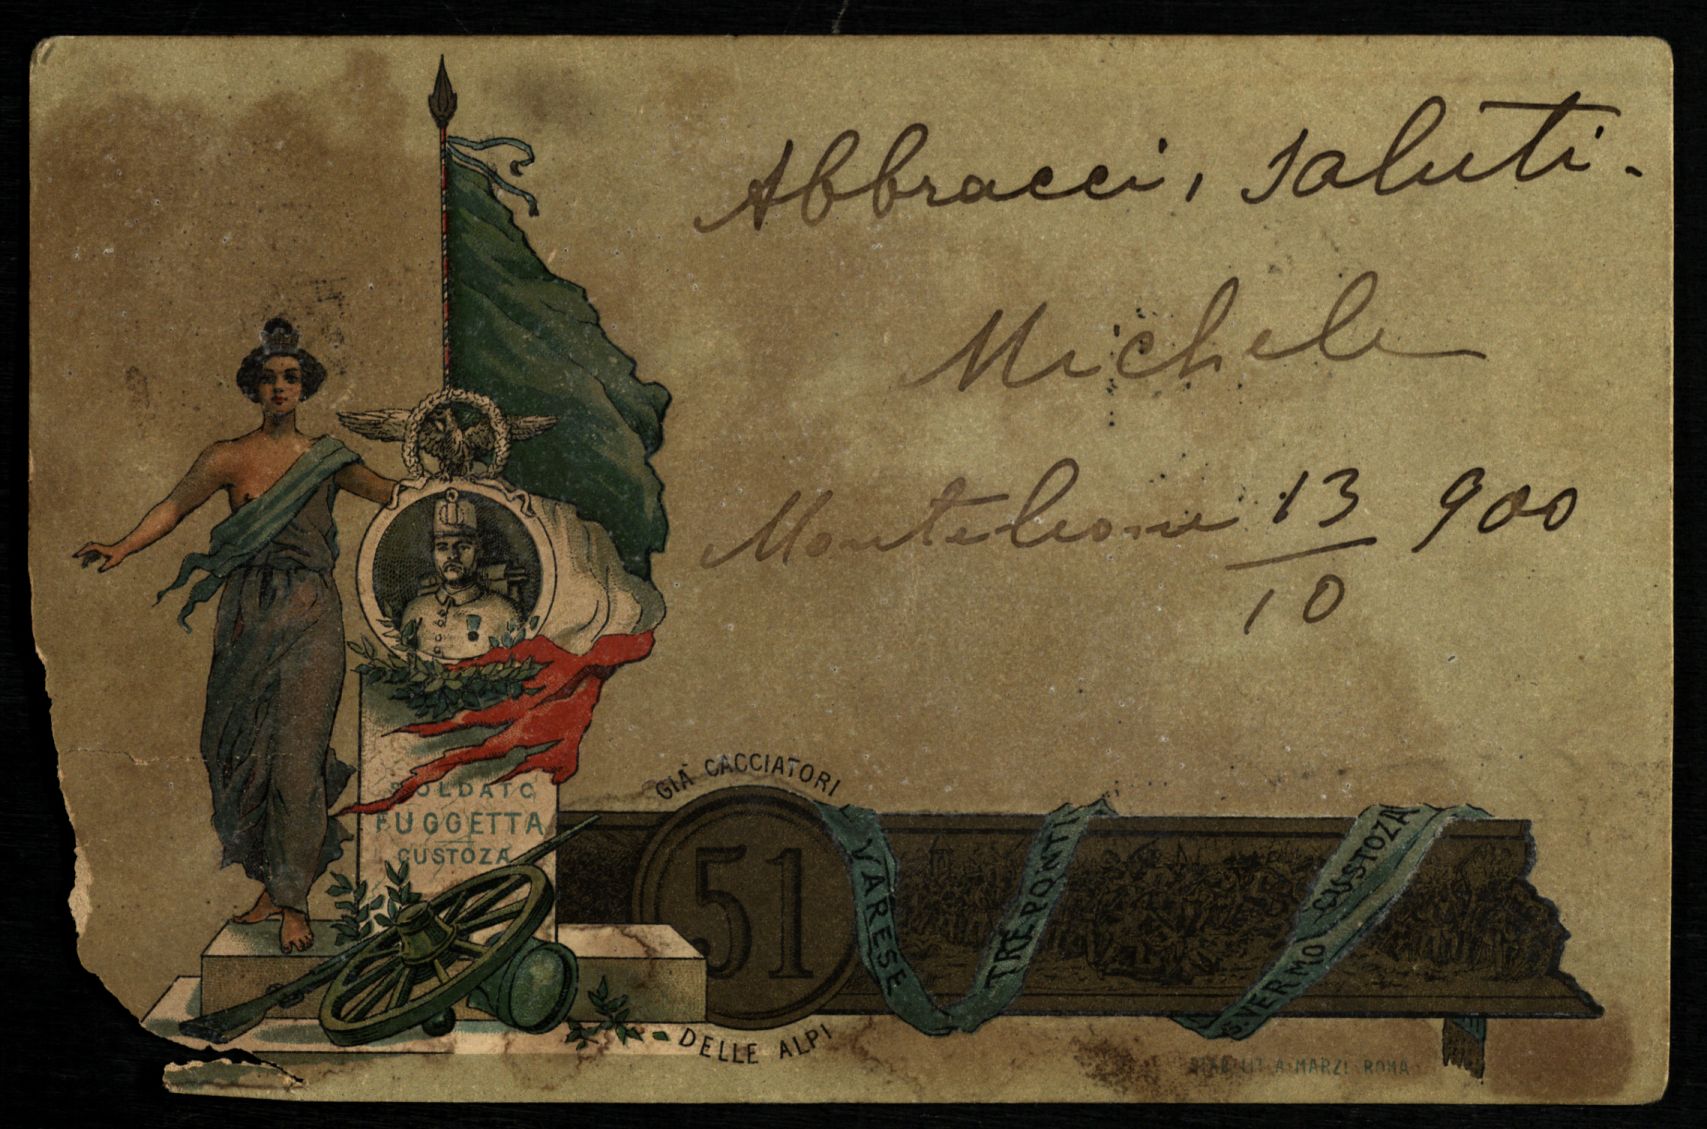 Abbracci, saluti.
Michele
Monteleone 13/10 900
SOLDATO
FUGGETTA
CUSTOZA
GIÀ CACCIATORI
51
DELLE ALPI
VARESE
TRE PONTI
S. VERMO CUSTOZA
STAB. LIT. A. MARZI. ROMA